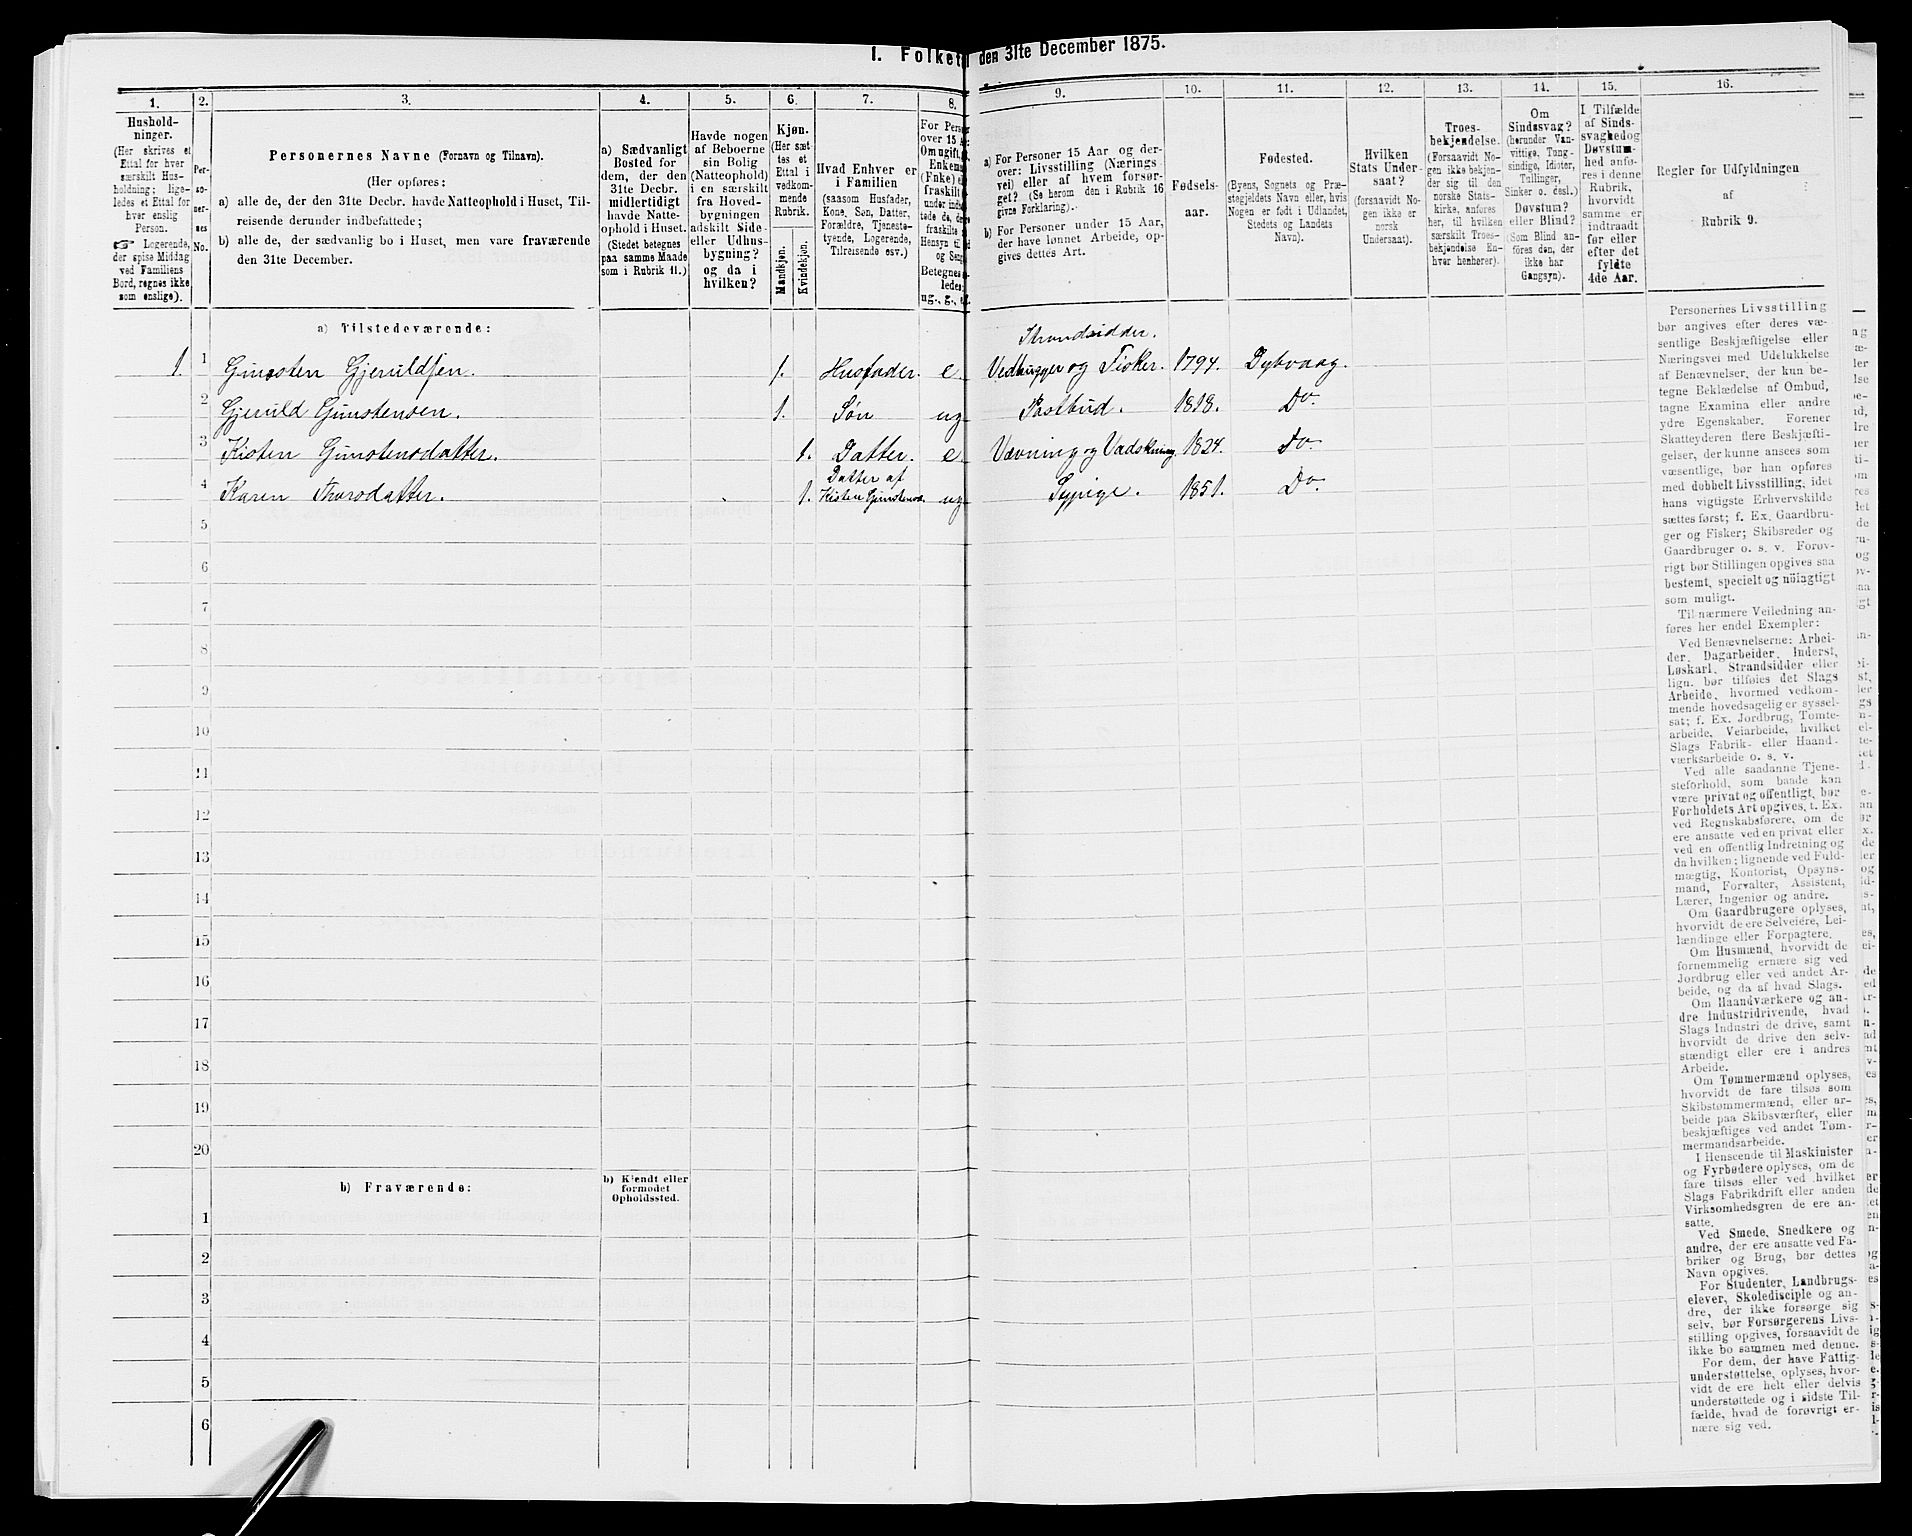 I. Folket
den 31te December 1875.
1.
2.
3.
4.
5.
6.
7.
8.
9.
10.
11.
12.
13.
14.
15.
16.
Hushold-
ninger.
(Her skrives et
Ettal for hver
særskilt Hus-
holdning; lige-
ledes et Ettal for
hver enslig
Person.
☞ Logerende,
der spise Middag
ved Familiens
Bord, regnes ikke
som enslige).
Per-
so-
ner-
nes
No.
Personernes Navne (Fornavn og Tilnavn).
(Her opføres:
a) alle de, der den 31te Decbr. havde Natteophold i Huset, Til-
reisende derunder indbefattede;
b) alle de, der sædvanlig bo i Huset, men vare fraværende
den 31te December.
a) Sædvanligt
Bosted for
dem, der den
31te Decbr.
midlertidigt
havde Natte-
ophold i Huset.
(Stedet betegnes
paa samme Maade
som i Rubrik 11.)
Havde nogen
af Beboerne
sin Bolig
(Natteophold)
i en særskilt
fra Hoved-
bygningen
adskilt Side-
eller Udhus-
bygning?
og da i
hvilken?
Kjøn.
(Her sæt-
tes et
Ettal i
vedkom-
mende
Rubrik.
Mandkjøn.
Kvindekjøn.
Hvad Enhver er
i Familien
(saasom Husfader,
Kone, Søn, Datter,
Forældre, Tjeneste-
tyende, Logerende,
Tilreisende osv.)
For Pers
over 15 A
Om ugift,
Enkem
(Enke) e
fraskilt
under indb
tede de, de
fraskilte
Hensyn til
og Seng
Betegnes
ledes:
ug., g., e.
a) For Personer 15 Aar og der-
over: Livsstilling (Nærings
vei) eller af hvem forsør-
get? (Se herom den i Rubrik 16
givne Forklaring).
b) For Personer under 15 Aar,
der have lønnet Arbeide, op-
gives dettes Art.
Fødsels-
aar.
Fødested.
(Byens, Sognets og Præ-
stegjeldets Navn eller, hvis
Nogen er født i Udlandet,
Stedets og Landets
Navn).
Hvilken
Stats Under-
saat?
(forsaavidt No-
gen ikke er
norsk
Undersaat).
Troes-
bekjendelse.
(Forsaavidt No-
gen ikke bekjen-
der sig til den
norske Stats-
kirke, anføres
her, til hvilken
særskilt Troes-
bekjendelse En-
hver henhører).
Om
Sindssvag?
(herunder Van-
vittige, Tung-
sindige, Idioter,
Tullinger,
Sinker o. desl.)
Døvstum?
eller Blind?
(Som Blind an-
føres den, der
ikke har
Gangsyn).
I Tilfælde
af Sinds-
svaghed og
Døvstum-
hed anfø-
res i denne
Rubrik,
hvorvidt
samme er
indtraadt
før eller
efter det
fyldte
4de Aar.
Regler for Udfyldningen
af
Rubrik 9.
a) Tilstedeværende:
Strandsidder.
1. 1 Gunsten Gjeruldsen. 1. Husfader. e. Vedhugger og Fisker. 1794. Dybvaag.
2 Gjeruld Gunstensen. 1. Søn ug Postbud. 1818. Do.
3 Kisten Gunstensdatter. 1. Datter. e. Vævning og Vadskning 1824. Do.
Datter af
4 Karen Thorsdatter. 1. Kisten Gunstensd. ug Sypige. 1851. Do.
5
6
7
8
9
10
11
12
13
14
15
16
17
18
19
20
b) Fraværende:
b) Kjendt eller
formodet
Opholdssted.
1
2
3
4
5
6
Personernes Livsstilling
bør angives efter deres væ-
sentlige Beskjæftigelse eller
Næringsvei med Udelukkelse
af Benævnelser, der kun be-
tegne Beklædelse af Ombud,
tagne Examina eller andre
ydre Egenskaber. Forener
Skatteyderen flere Beskjæfti-
gelser, der kunne ansees som
væsentlige, bør han opføres
med dobbelt Livsstilling, idet
hans vigtigste Erhvervskilde
sættes først; f. Ex. Gaardbru-
ger og Fisker; Skibsreder og
Gaardbruger o. s. v. Forøv-
rigt bør Stillingen opgives saa
bestemt, specielt og nöiagtigt
som muligt.
Til nærmere Veiledning an-
føres her endel Exempler:
Ved Benævnelserne: Arbei-
der, Dagarbeider, Inderst,
Løskarl, Strandsidder eller
lign. bør tilføies det Slags
Arbeide, hvormed vedkom-
mende hovedsagelig er syssel-
sat; f. Ex. Jordbrug, Tomte-
arbeide, Veiarbeide, hvilket
Slags Fabrik- eller Haand-
værksarbeide o. s. v.
Ved alle saadanne Tjene-
steforhold, som baade kan
være privat og offentligt, bør
Forholdets Art opgives, t. Ex.
ved Regnskabsførere, om de
ere ansatte ved en privat eller
ved en offentlig Indretning og
da hvilken; lignende ved Fuld-
mægtig, Kontorist, Opsyns-
mand, Forvalter, Assistent,
Lærer, Ingeniør og andre.
Om Gaardbrugere oplyses,
hvorvidt de ere Selveiere, Lei-
lændinge eller Forpagtere.
Om Husmænd, hvorvidt de
fornemmelig ernære sig ved
Jordbrug eller ved andet Ar-
beide, og da af hvad Slags.
Om Haandværkere og an-
dre Industridrivende, hvad
Slags Industri de drive, samt
hvorvidt de drive den selv-
stændigt eller ere i andres
Arbeide.
Om Tømmermænd oplyses,
hvorvidt de fare tilsøs som
Skibstømmermænd, eller ar-
beide paa Skibsværfter, eller
beskjæftiges ved andet Tøm-
mermandsarbeide.
I Henseende til Maskinister
og Fyrbødere oplyses, om de
fare tilsøs eller ved hvilket
Slags Fabrikdrift eller anden
Virksomhedsgren de ere an-
satte.
Ved Smede, Snedkere og
andre, der ere ansatte ved Fa-
briker og Brug, bør dettes
Navn opgives.
For Studenter, Landbrugs-
elever, Skoledisciple og an-
dre, der ikke forsørge sig
selv, bør Forsørgerens Livs-
stilling opgives, forsaavidt de
ikke bo sammen med denne.
For dem, der have Fattig-
understøttelse, oplyses, hvor-
vidt de ere helt eller delvis
understøttede og i sidste Til-
fælde, hvad de forøvrigt er-
nære sig ved.